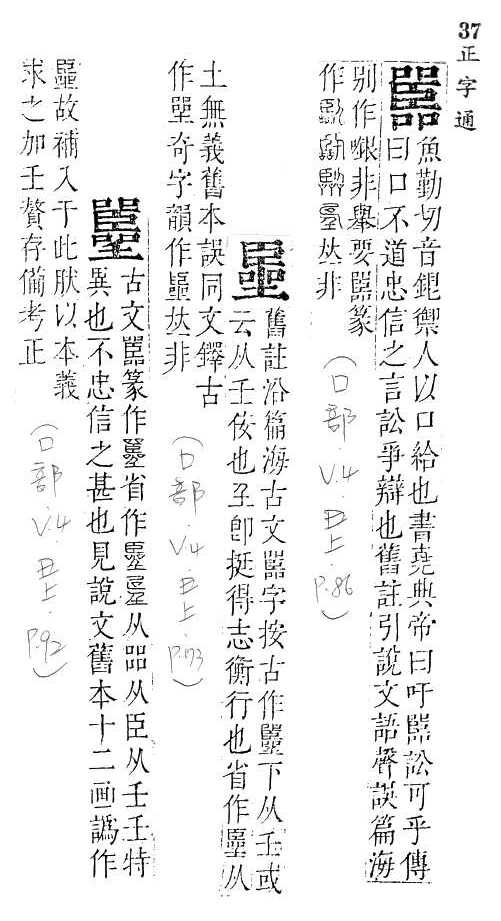 37 正字通
嚚
魚勤切音銀禦人以口給也書堯典帝曰吁嚚訟可乎傳
曰口不道忠信之言訟爭辯也舊註引說文語聲誤篇海
别作非舉要嚚篆
作𠀤非
(口部.V4.丑上.P.86)
舊註沿篇海古文嚚字按古作下从壬或
云从壬佞也壬卽挺得志衡行也省作从
土無義舊本誤同文鐸古
作奇字韻作𠀤非
(口部.V4.丑上.P.73)
古文嚚篆作省作从㗊从臣从壬壬特
異也不忠信之甚也見說文舊本十二画譌作
故補入于此肰以本義
求之加壬贅存備考正
(口部.V4.丑上.P.92)